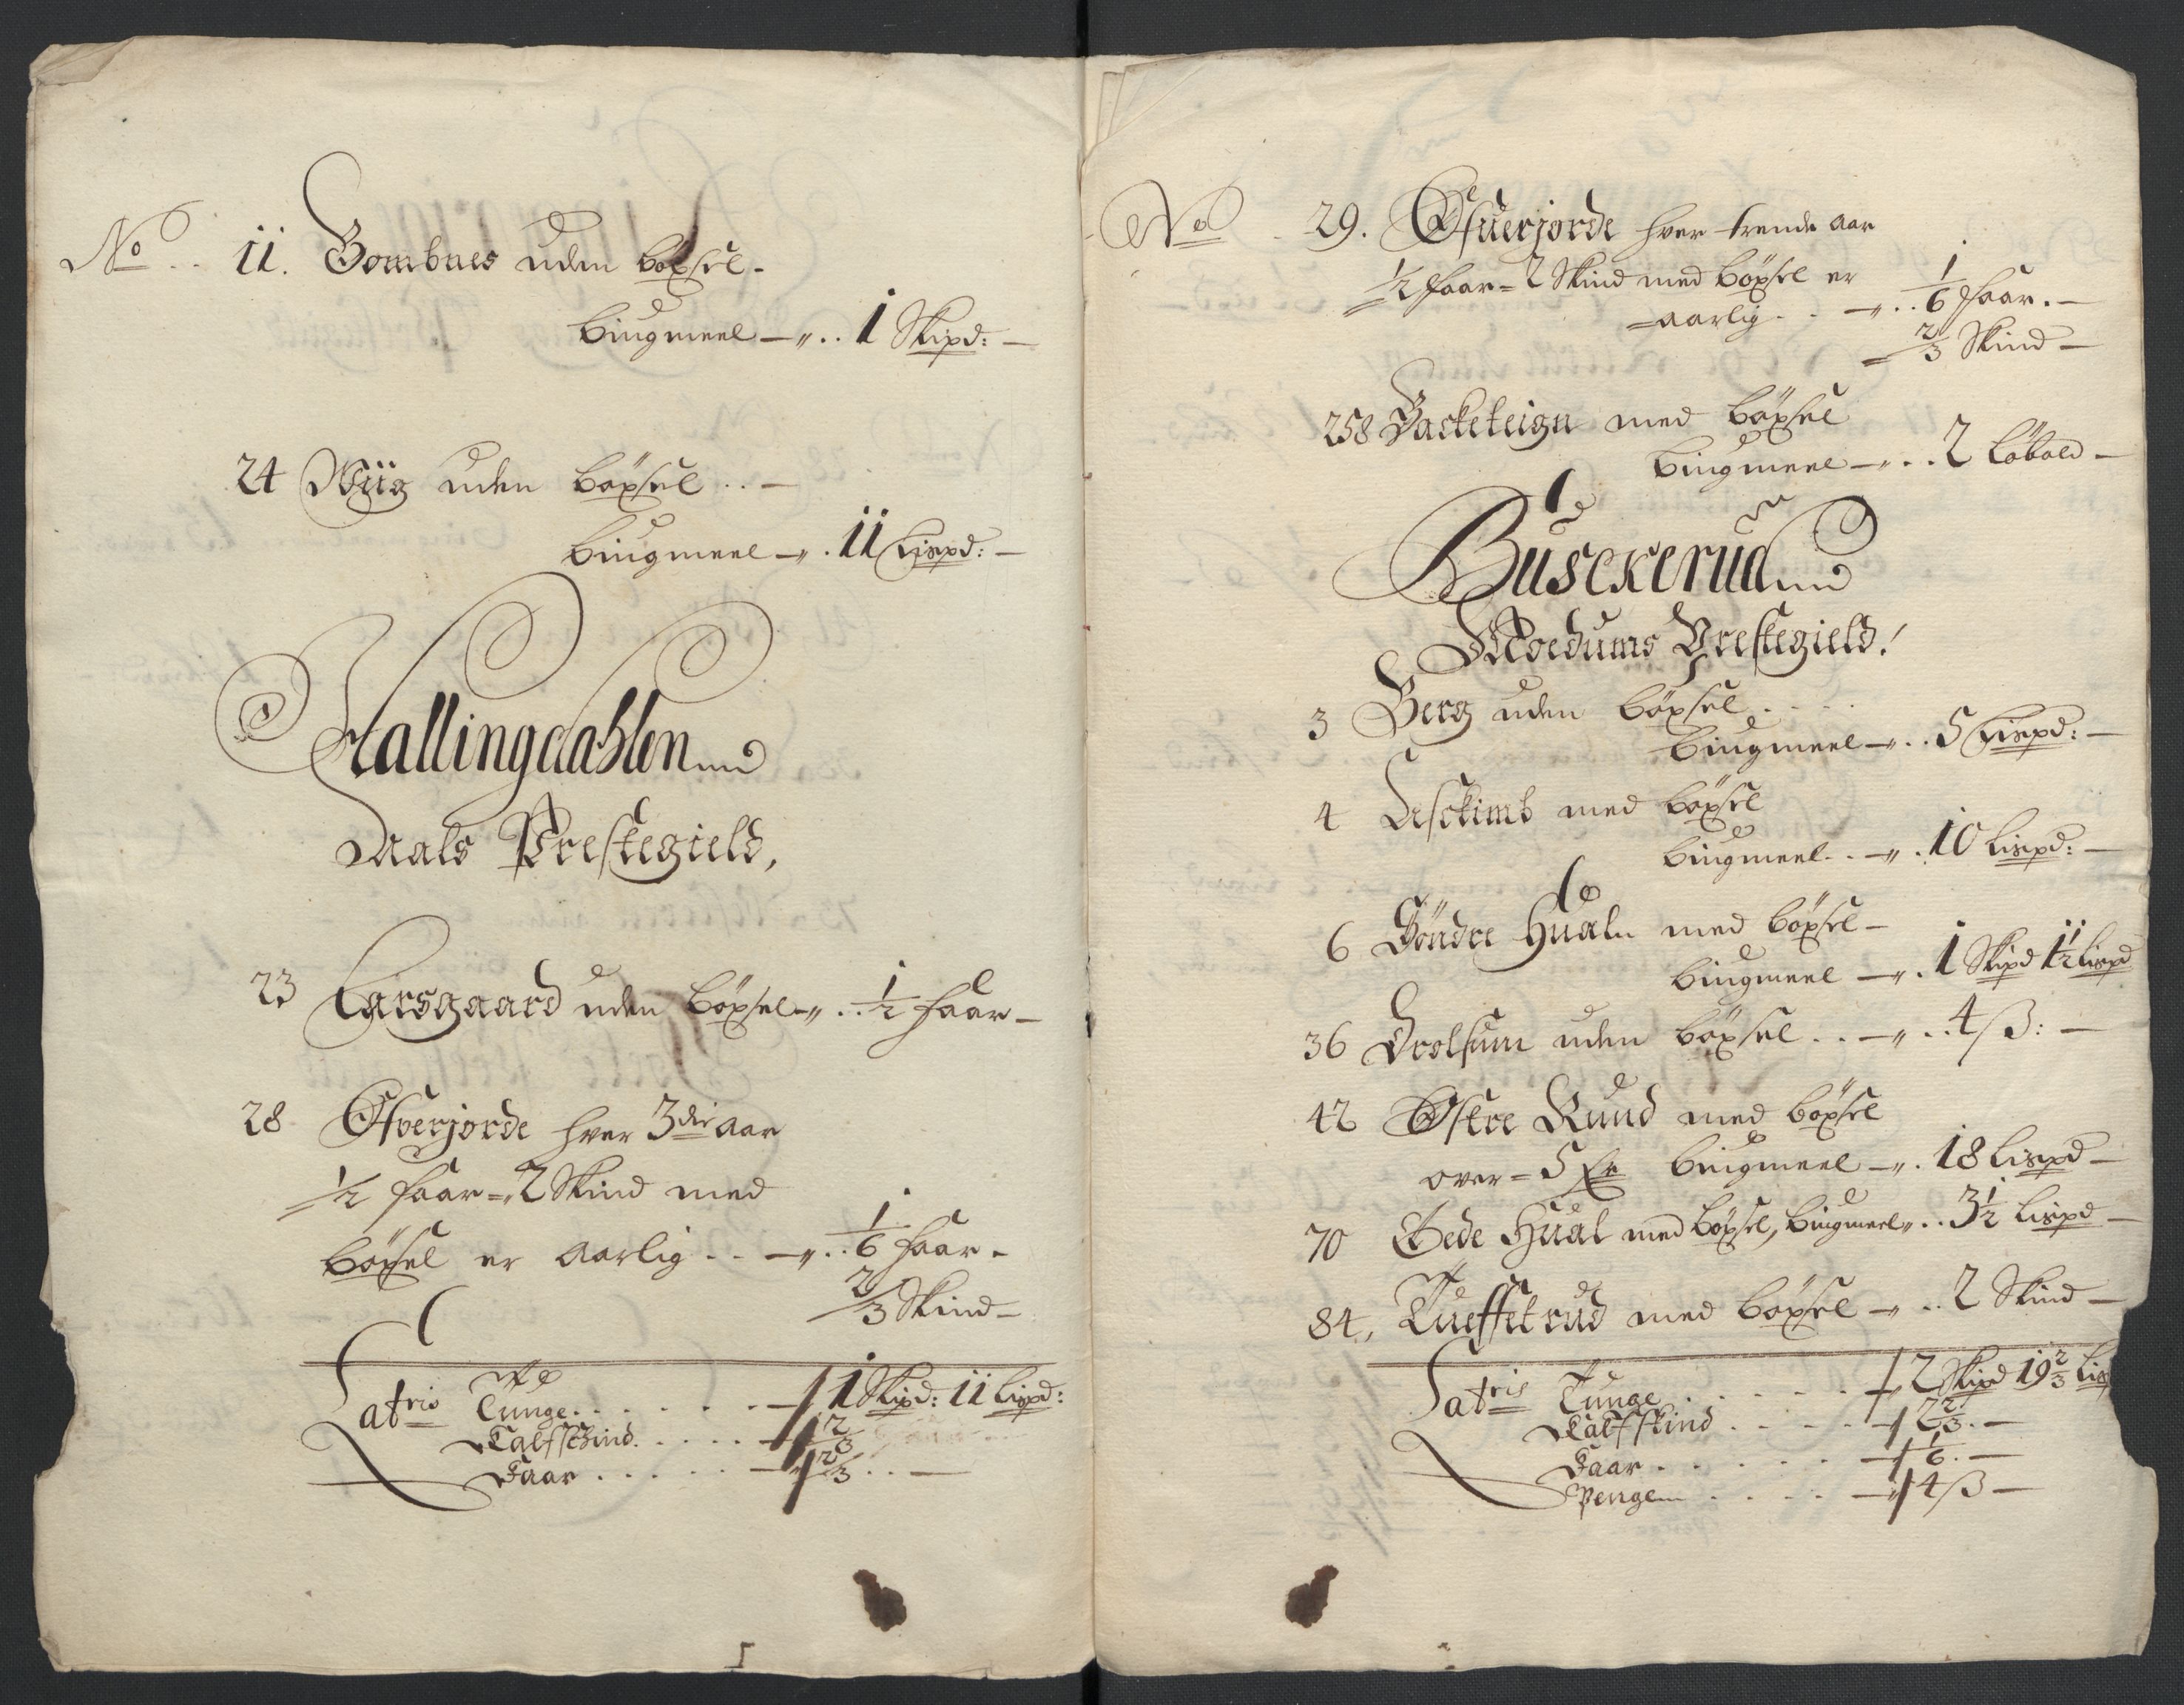 No .. 11. Gombnes uden böxsel.
biugmeel — „ .. 1 Skipd: —
24 Wiig uden böxsel .. —
biugmeel — „ . 11 Lispd: —
Hallingdahlen
Aals Prestegield,
23 Larsgaard uden böxsel — „ .. 1/2 faar —
28 Øfverjorde hver 3die aar
1/2 faar = „ 2 Skind med
böxsel er aarlig .. — „ .. 1/6 faar -
2/3 Skind —
Latris Tunge . . . . . — 1 Skipd: 11 Lispd:
Kalfschind . . . . — 2/3
Faar . . . . . — 2/3 . . —
No 29. Øfuerjorde hver trende aar
1/2 faar = 2 Skind med böxsel er
aarlig . . — „ . . 1/6 faar. —
2/3 Skind —
258 Backeteign med böxsel
biugmeel — „ . . 2 Løbold —
Busckerud
Moedums Prestegield!
3 Berg uden böxsel . . . .
biugmeel — „ . . 5 Lispd: —
4 Asckimb med böxsel
biugmeel . . — „ . 10 Lispd: —
6 Söndre Hualn med böxsel —
biugmeel — „ . 1 Skipd 1 1/2 Lispd
36 Drolsum uden böxsel . . — „ . . 4 ß: —
42 Østre Rund med böxsel
over = 5 biugmeel — „ . 18 Lispd —
70 Gede Hual med böxsel, biugmeel „ . . 3 1/2 Lispd —
84, Tueffetrud med böxsel — „ . . 2 Skind —
Latris Tunge . . . . . — 2 Skipd 19 2/3 Lis
Kalfskind . . . . — 2 2/3 . —
Faar . . . . . — 1/6 . —
Penge . . . . — „ 4 ß —